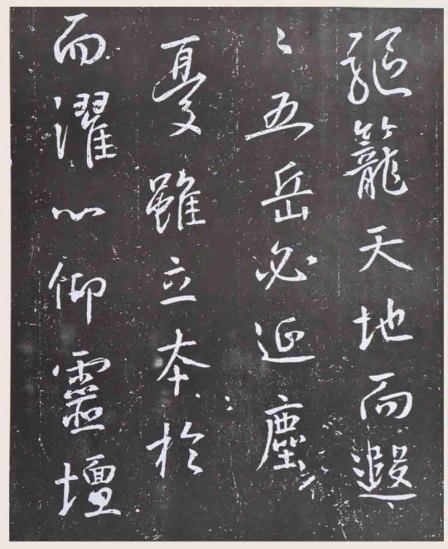 驅籠天地而遐
〻五岳必延塵
憂雖立本於
而濯心仰靈壇